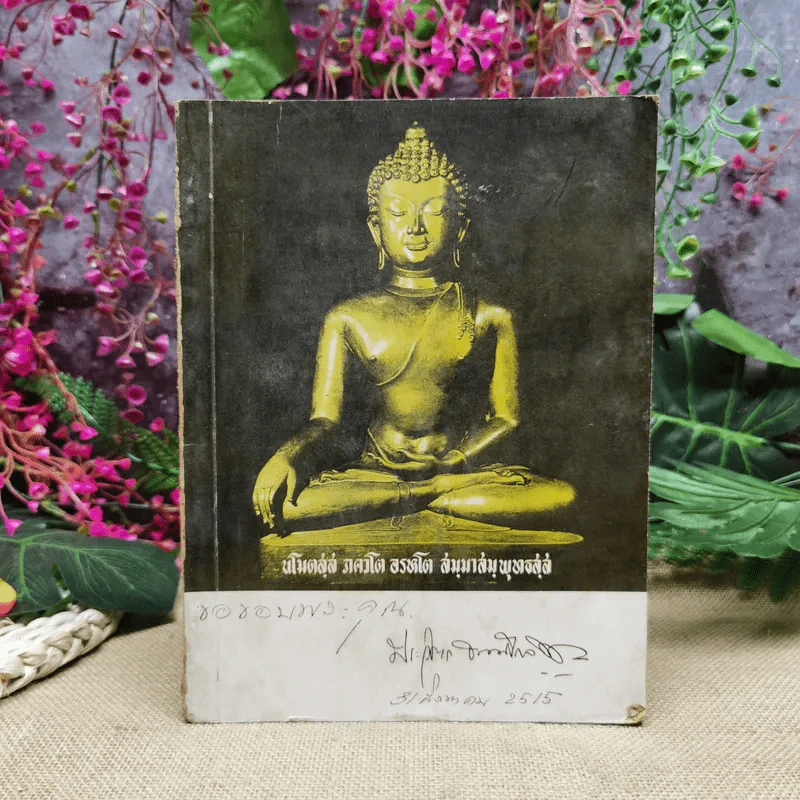 นโมตสฺส ภควโต อรหโต สมฺมาสมฺพุทธสฺส
ขอขอบพระคุณ.
31 สิงหาคม 2515